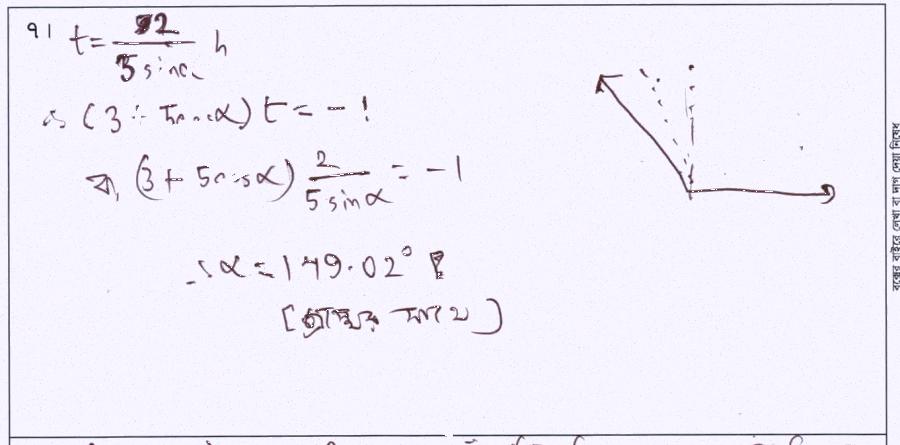 ৭। t = 2/(5 sinα) h
∴ (3 + 5cosα) t = -1
বা, (3 + 5cosα) 2/(5 sinα) = -1
∴ α = 149.02°
সাথে ]
বক্সের বাইরে লেখা বা দাগ দেয়া নিষেধ